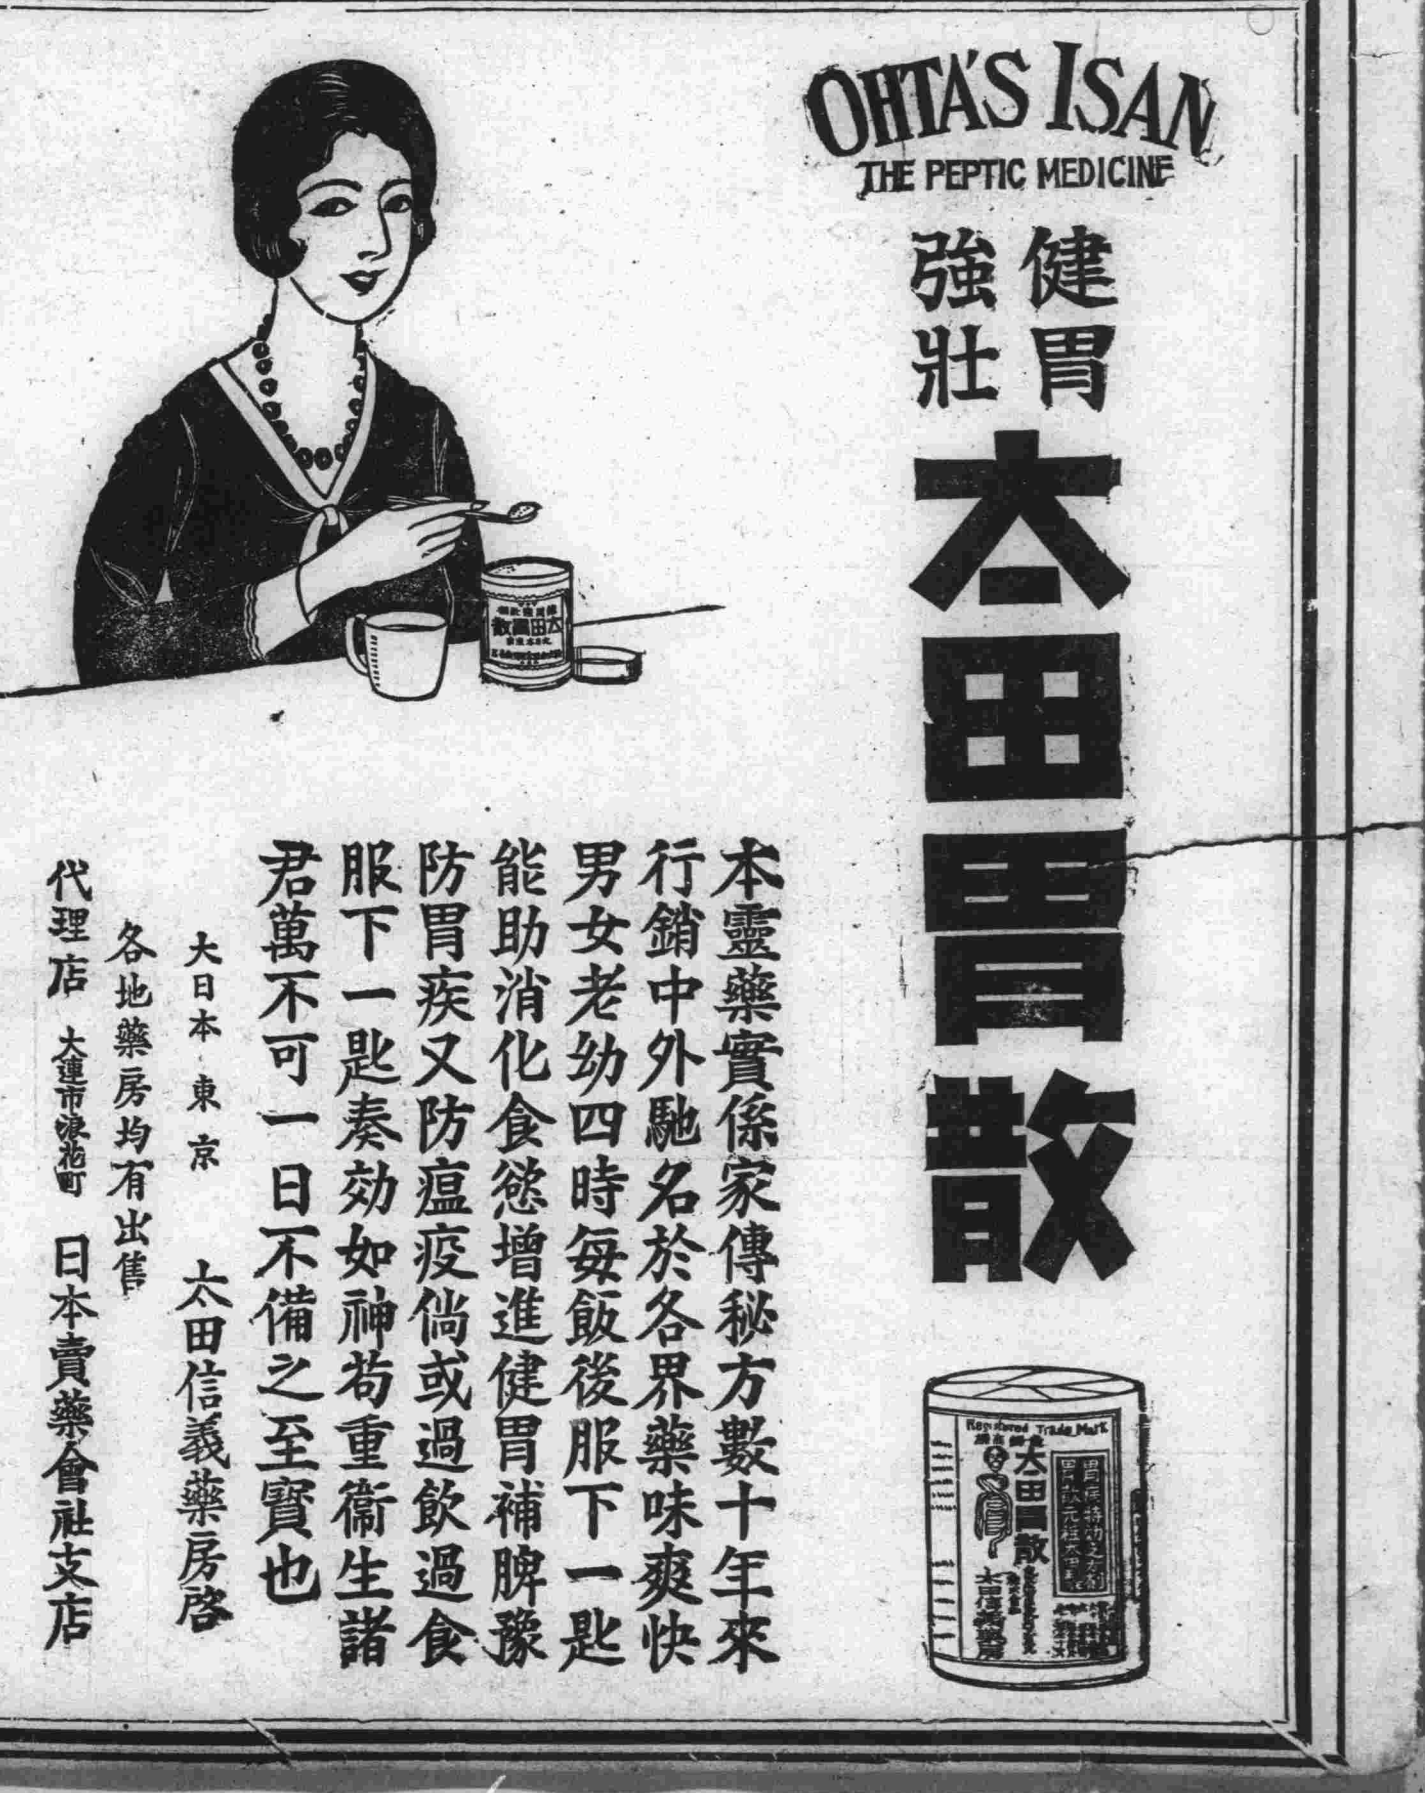 OHTA'S ISAN
THE PEPTIC MEDICINE
健胃
強壯
太田胃散
本靈藥實係家傳秘方數十年來
行銷中外馳名於各界藥味爽快
男女老幼四時每飯後服下一匙
能助消化食慾增進健胃補脾豫
防胃疾又防瘟疫倘或過飲過食
服下一匙奏効如神茍重衞生諸
君萬不可一日不備之至寶也
大日本東京 太田信義藥房啓
各地藥房均有出售
代理店 大連市浪花町 日本賣藥會社支店
太田胃散
Registered Trade Mark
太田胃散
太田信義藥房